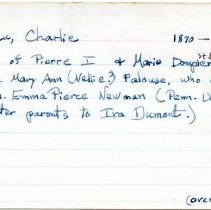 u, Charlie 1870 –
of Pierre I & Marie
. Mary Ann (Nellie?) Palouse, who
. Emma Pierce Newman (Penn. D
ter parents to Ira Dumont.)
(over